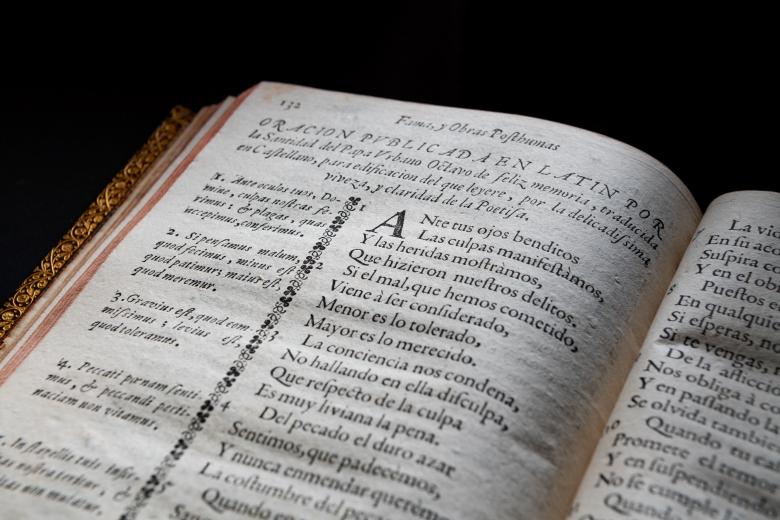 132
Fama, y Obras Posthumas
ORACION PVBLICADA EN LATIN POR
la Santidad del Papa Vrbano Octavo de feliz memoria, traducida
en Castellano, para edificacion del que leyere, por la delicadissima
viveza, y claridad de la Poetisa.
1. Ante oculos tuos, Do-
mine, culpas nostras fe-
rimus: & plagas, quas
accepimus, conferimus.
2. Si pensamus malum,
quod fecimus, minus est
quod patimur: maius est,
quod meremur.
3. Gravius est, quod com-
missimus: levius est,
quod toleramus.
4. Peccati pœnam senti-
mus, & peccandi perti-
naciam non vitamus.
1
ANte tus ojos benditos
Las culpas manifestàmos,
Y las heridas mostràmos,
Que hizieron nuestros delitos.
Si el mal, que hemos cometido,
Viene à ser considerado,
Menor es lo tolerado,
Mayor es lo merecido.
3
La conciencia nos condena,
No hallando en ella disculpa,
Que respecto de la culpa
Es muy liviana la pena.
4
Del pecado el duro azar
Sentimos, que padecèmos,
Y nunca enmendar querèmos
La costumbre del
Quando
La vid
En su aco
Suspira co
Y en el ob
Puestos
En qualqui
Si esperas, no
Si te vengas,
De la aflicci
Nos obliga à co
Y en passando la
Se olvida tambie
Quando tu
Promete el temor
Y en suspendiend
No se cumple
Quando